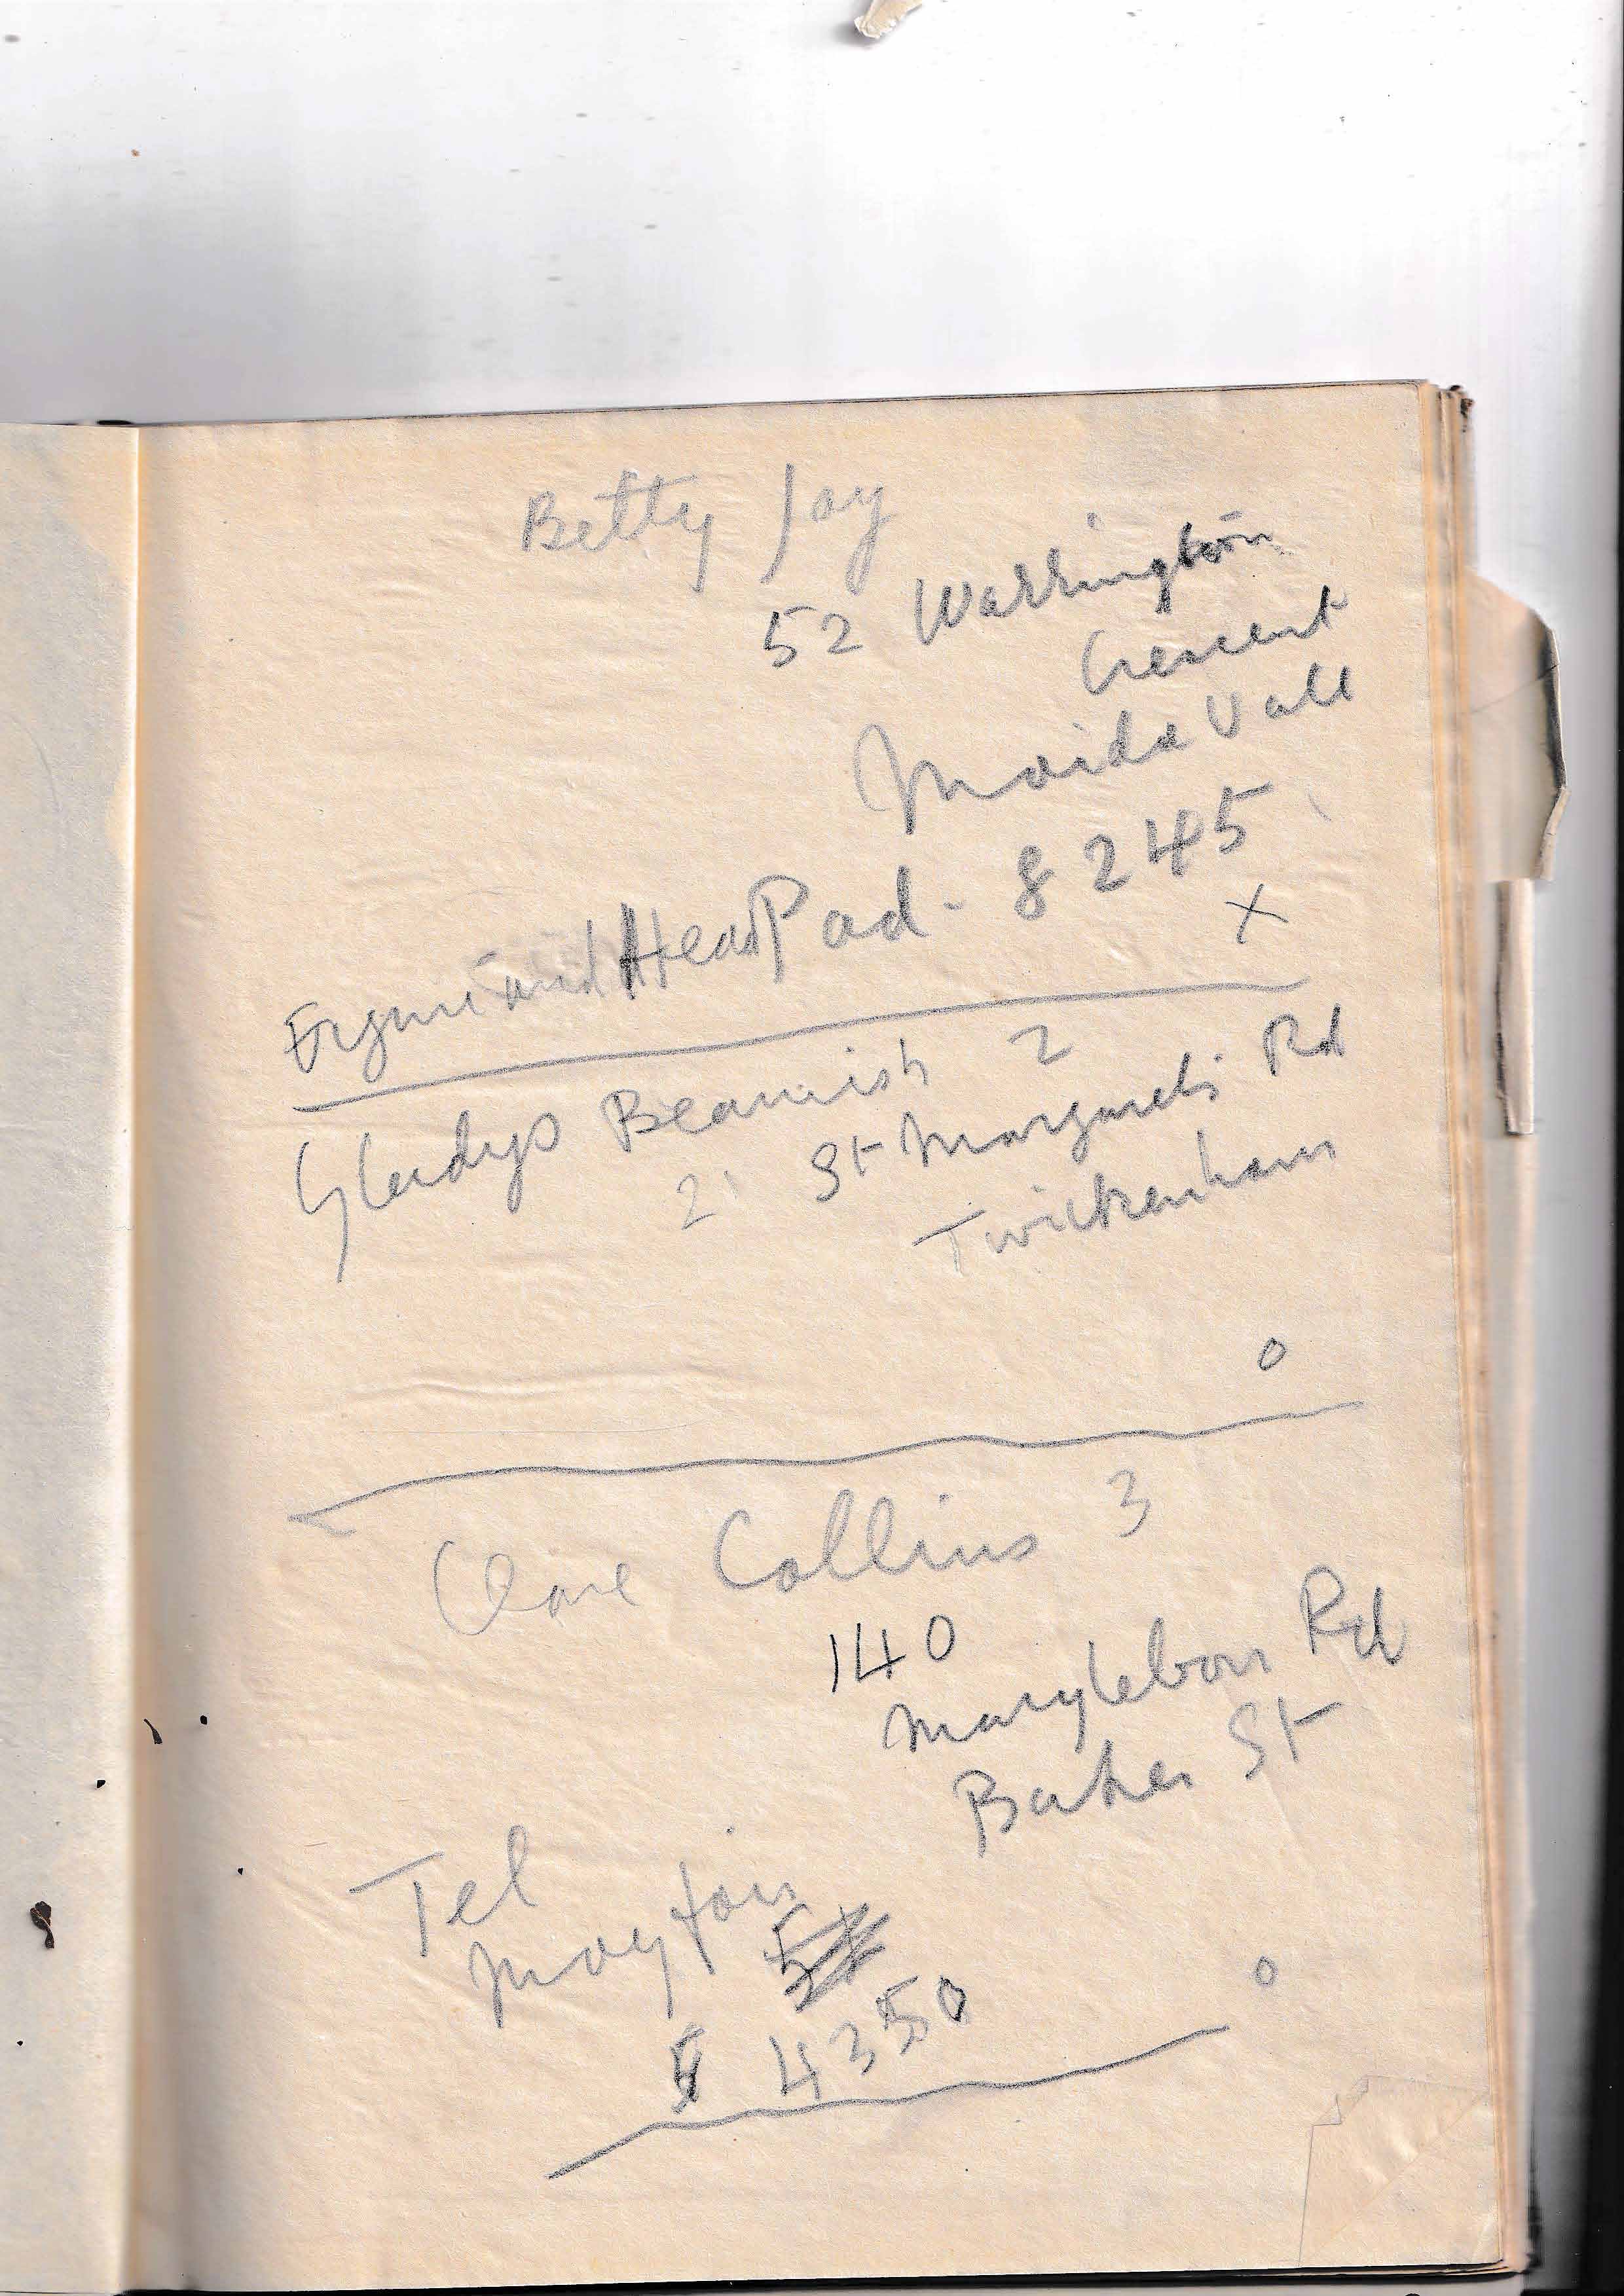 Betty Jay
52 Warrington
Crescent
Maida Vale
Head Pad - 8245
X
Gladys Beamish 2
2 St Margarets Rd
Twickenham
0
Clare Collins 3
140
Marylebone Rd
Baker St
Tel
Mayfair
4350
0